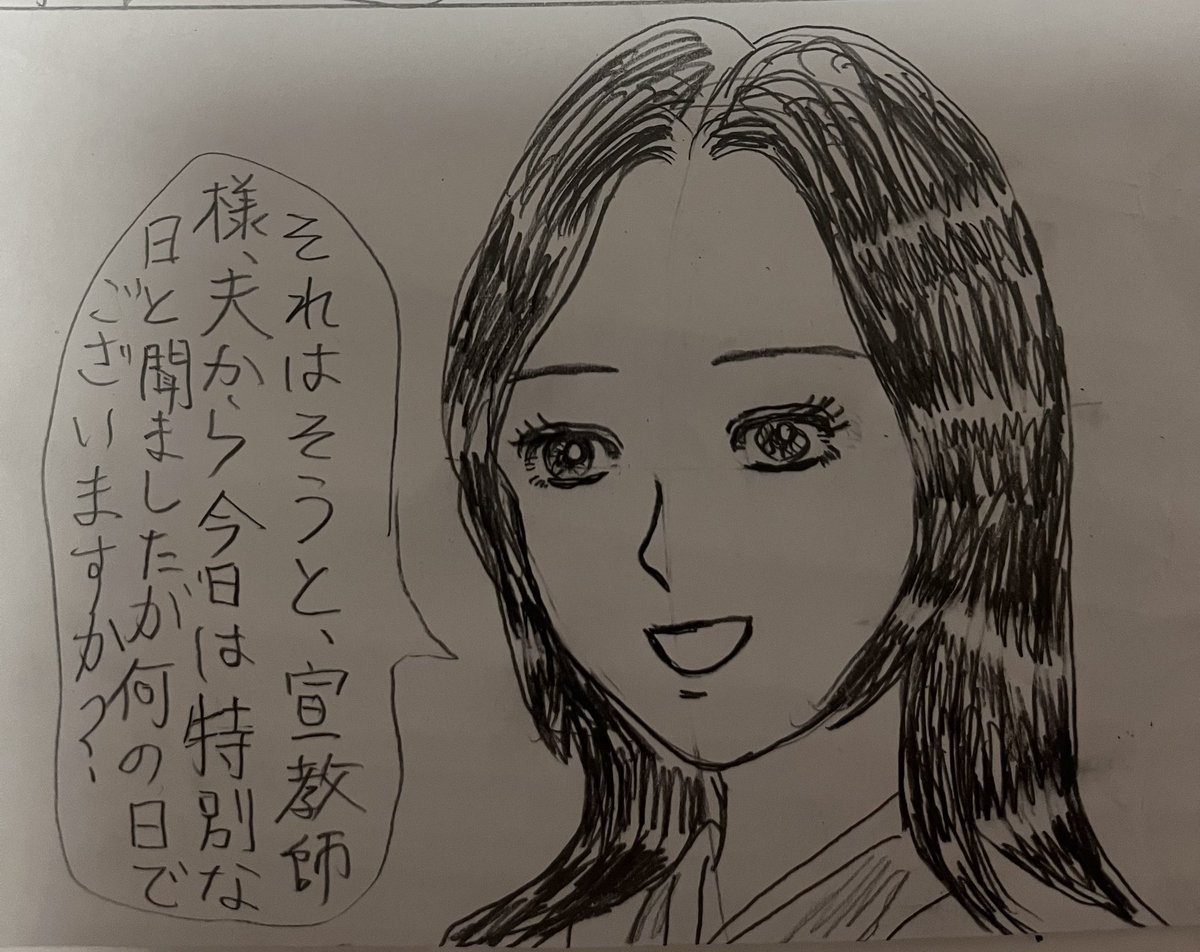 それはそうと、宣教師
様、夫から今日は特別な
日と聞ましたが何の日で
ございますか?